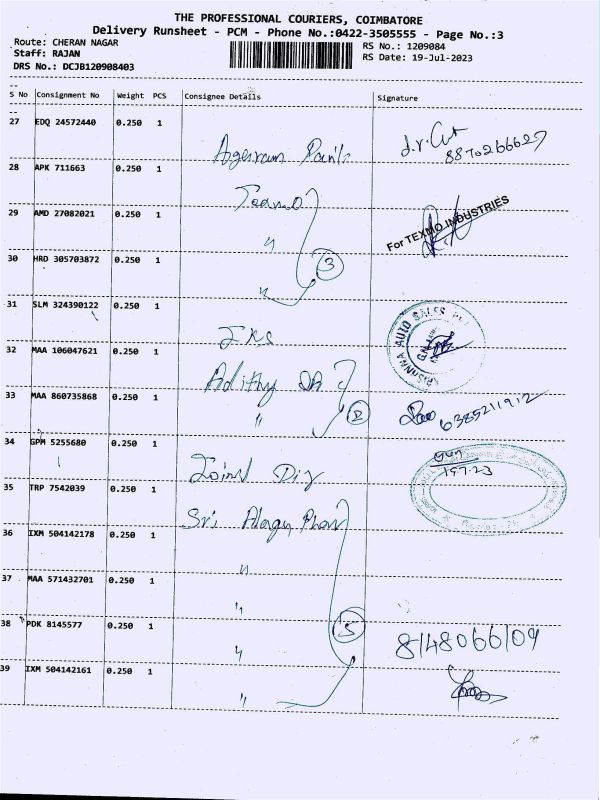 THE PROFESSIONAL COURIERS, COIMBATORE
Delivery Runsheet - PCM - Phone No.:0422-3505555 - Page No.:3
Route: CHERAN NAGAR
RS No.: 1209084
Staff: RAJAN
RS Date: 19-Jul-2023
DRS No.: DCJB120908403
S No Consignment No Weight PCS Consignee Details Signature
27 EDQ 24572440 0.250 1
8870266627
28 APK 711663 0.250 1
For TEXMO INDUSTRIES
29 AMD 27082021 0.250 1
"
30 HRD 305703872 0.250 1
3
"
31 SLM 324390122 0.250 1
KRISHNA AUTO SALES
32 MAA 106047621 0.250 1
Adithy
33 MAA 860735868 0.250 1
" 2 6385211912
34 GPM 5255680 0.250 1
19.7.23
35 TRP 7542039 0.250 1
Sri
36 IXM 504142178 0.250 1
"
37 MAA 571432701 0.250 1
"
38 PDK 8145577 0.250 1
5
" 8148066109
39 IXM 504142161 0.250 1
"